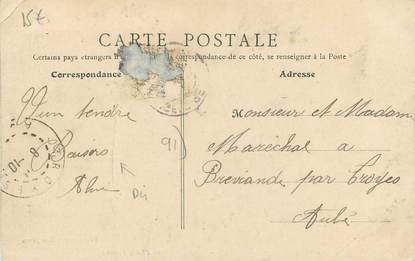 15€
CARTE POSTALE
Certains pays étrangers n' la correspondance de ce côté, se renseigner à la Poste
Correspondance
Adresse
Un tendre
Baisers
91
Monsieur et Madam
Maréchal a
Breviande par Troyes
Aube